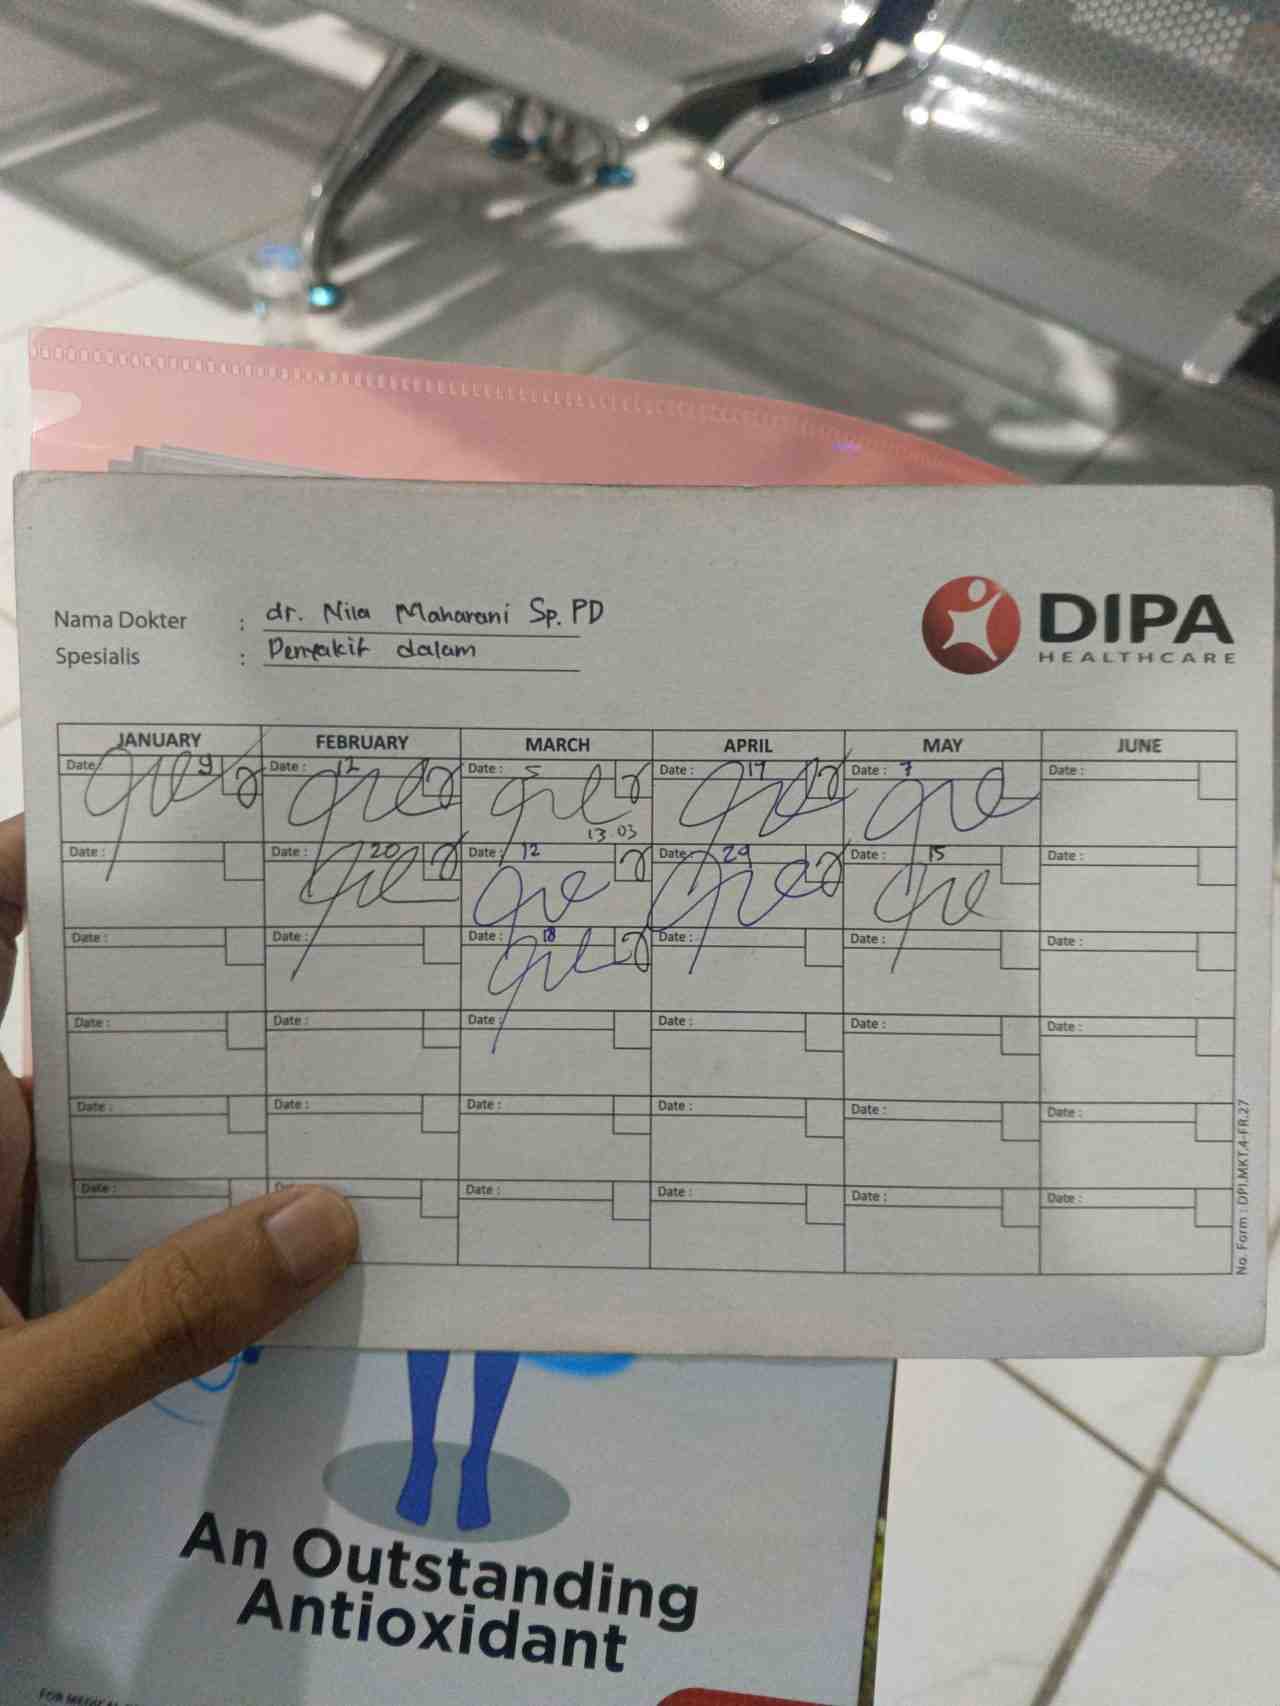 Nama Dokter : dr. Nila Maharani Sp. PD
Spesialis : Penyakit dalam
DIPA
HEALTHCARE
JANUARY FEBRUARY MARCH APRIL MAY JUNE
Date 9 Date : 12 Date : 5 Date : 17 Date : 7 Date :
13.03
Date : Date : 20 Date : 12 Date : 29 Date : 15 Date :
Date : Date : Date : 18 Date : Date : Date :
Date : Date : Date : Date : Date : Date :
Date : Date : Date : Date : Date : Date :
Date : Date : Date : Date : Date :
No. Form : DPI.MKT.4-FR.27
An Outstanding
Antioxidant
FOR MEDICAL